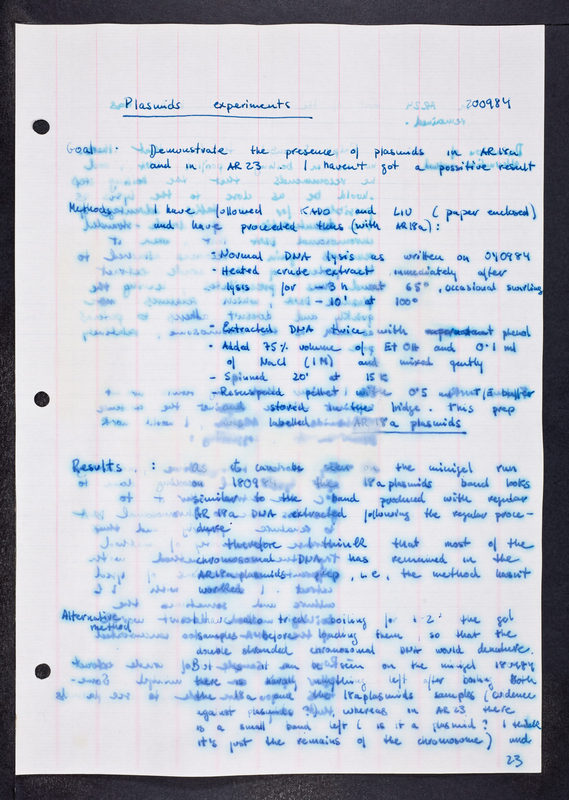 Plasmids experiments 200984
Goal : Demonstrate the presence of plasmids in AR18a
and in AR23. I haven't got a possitive result
Methods I have followed KADO and LIU (paper enclosed)
and have proceeded thus (with AR18a):
- Normal DNA lysis as written on 040984
- Heated crude extract immediately after
lysis for - 3 h at 65°, occasional swirling
- 10' at 100°
- Extracted DNA twice with phenol
- Added 75% volume of EtOH and 0.1 ml
of NaCl (1M) and mixed gently
- Spinned 20' at 15 K
- Resuspend pellet with 0.5 T/E buffer
and stored in the fridge. This prep
labelled AR18a plasmids
Results : As it can be seen on the minigel run
180984 the 18a plasmids band looks
similar to the band produced with regular
AR18a DNA extracted following the regular proce-
dure
I therefore think that most of the
chromosomal DNA has remained in the
AR18a plasmids prep, i.e., the method hasn't
worked.
Alternative
method
I have also tried boiling for 1-2' the gel
samples before loading them, so that the
double stranded chromosomal DNA would denature.
As it can be seen on the minigel 180984
there is hardly anything left after boiling both
the 18a and the 18a plasmids samples (evidence
against plasmids?), whereas in AR23 there
is a small band left (is it a plasmid? I think
it's just the remains of the chromosome) and
23